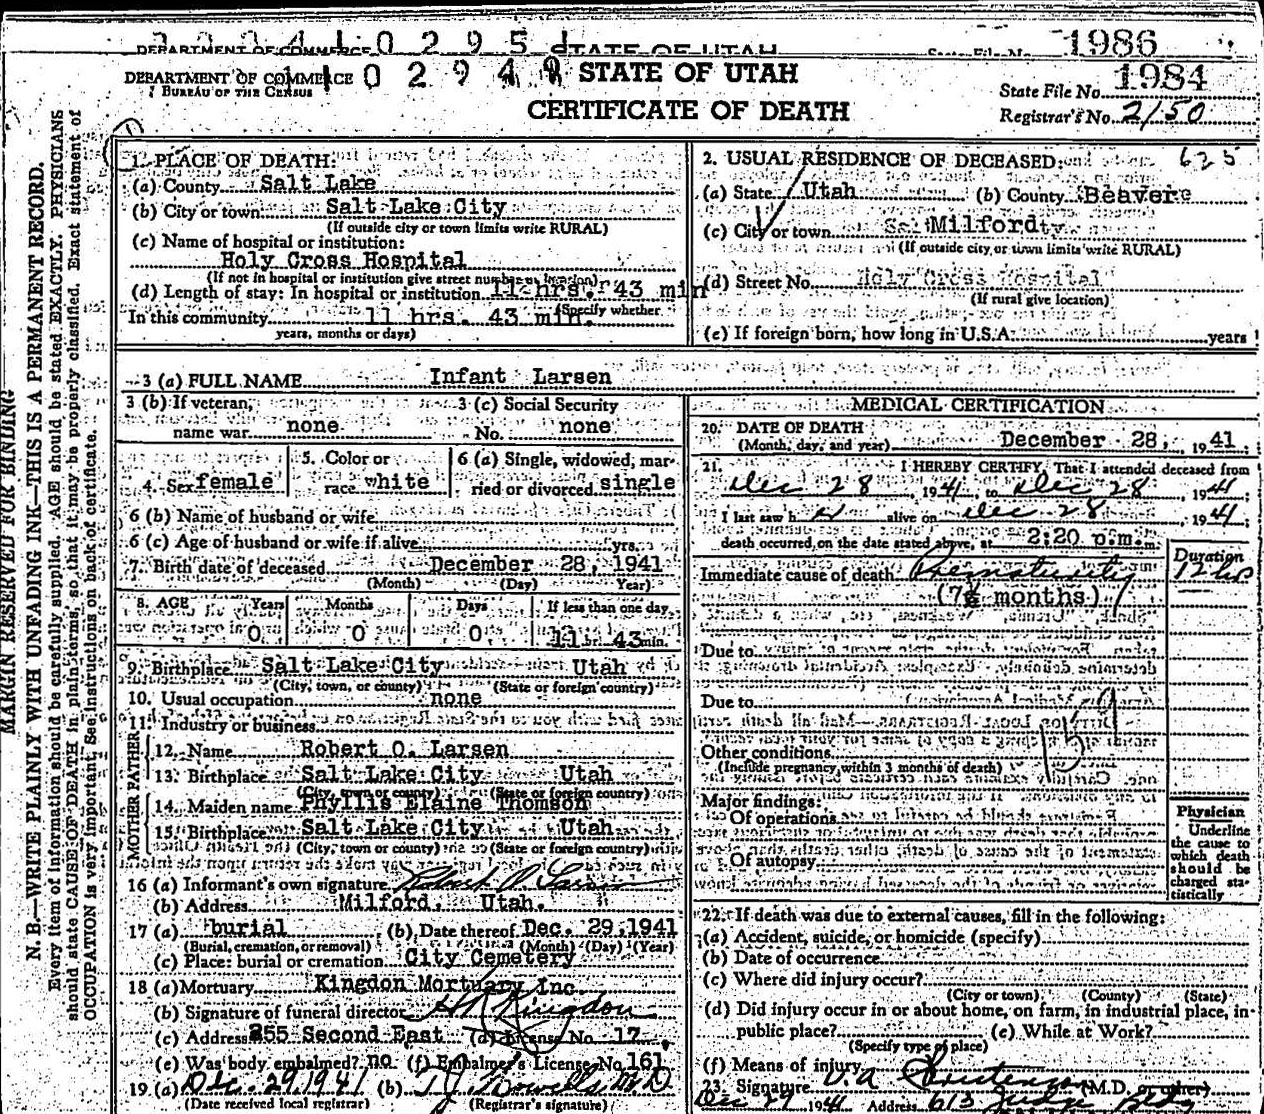 DEPARTMENT OF COMMERCE STATE OF UTAH State File No. 1986
DEPARTMENT OF COMMERCE STATE OF UTAH
BUREAU OF THE CENSUS
CERTIFICATE OF DEATH
State File No. 1984
Registrar's No. 2150
MARGIN RESERVED FOR BINDING
N. B.—WRITE PLAINLY WITH UNFADING INK—THIS IS A PERMANENT RECORD.
Every item of information should be carefully supplied. AGE should be stated EXACTLY. PHYSICIANS
should state CAUSE OF DEATH in plain terms, so that it may be properly classified. Exact statement of
OCCUPATION is very important. See instructions on back of certificate.
1. PLACE OF DEATH:
(a) County Salt Lake
(b) City or town Salt Lake City
(If outside city or town limits write RURAL)
(c) Name of hospital or institution:
Holy Cross Hospital
(If not in hospital or institution give street number or location)
(d) Length of stay: In hospital or institution 11 hrs. 43 min
(Specify whether
In this community 11 hrs. 43 min.
years, months or days)
2. USUAL RESIDENCE OF DECEASED: 625
(a) State Utah (b) County Beaver
(c) City or town Milford
(If outside city or town limits write RURAL)
(d) Street No. Holy Cross Hospital
(If rural give location)
(e) If foreign born, how long in U.S.A. years
3 (a) FULL NAME Infant Larsen
3 (b) If veteran, 3 (c) Social Security
name war none No. none
4. Sex female 5. Color or race white 6 (a) Single, widowed, married or divorced single
6 (b) Name of husband or wife
6 (c) Age of husband or wife if alive yrs.
7. Birth date of deceased December 28, 1941
(Month) (Day) Year)
8. AGE Years Months Days If less than one day
0 0 0 11 hr. 43 min.
9. Birthplace Salt Lake City Utah
(City, town, or county) (State or foreign country)
10. Usual occupation none
11. Industry or business
FATHER
12. Name Robert O. Larsen
13. Birthplace Salt Lake City Utah
(City, town or county) (State or foreign country)
MOTHER
14. Maiden name Phyllis Elaine Thomson
15. Birthplace Salt Lake City Utah
(City, town or county) (State or foreign country)
16 (a) Informant's own signature Robert O. Larsen
(b) Address Milford, Utah.
17 (a) burial (b) Date thereof Dec. 29, 1941
(Burial, cremation, or removal) (Month) (Day) (Year)
(c) Place: burial or cremation City Cemetery
18 (a) Mortuary Kingdon Mortuary Inc.
(b) Signature of funeral director Kingdon
(c) Address 255 Second East (d) License No. 17
(e) Was body embalmed? no (f) Embalmer's License No. 161
19 (a) Dec. 29 1941 (b) M D
(Date received local registrar) (Registrar's signature)
MEDICAL CERTIFICATION
20. DATE OF DEATH
(Month, day, and year) December 28, 1941
21. I HEREBY CERTIFY, That I attended deceased from
Dec 28, 1941, to Dec 28, 1941
I last saw h alive on Dec 28, 1941;
death occurred on the date stated above, at 2:20 p.m.
Duration
Immediate cause of death Prematurity 12 hrs
(7½ months)
Due to
Due to
159
Other conditions
(Include pregnancy within 3 months of death)
Major findings:
Of operations
Of autopsy
Physician
Underline
the cause to
which death
should be
charged sta-
tistically
22. If death was due to external causes, fill in the following:
(a) Accident, suicide, or homicide (specify)
(b) Date of occurrence
(c) Where did injury occur?
(City or town) (County) (State)
(d) Did injury occur in or about home, on farm, in industrial place, in
public place? (e) While at Work?
(Specify type of place)
(f) Means of injury
23. Signature M.D. or other)
Dec 29 1941 Address 613 Judge Bldg